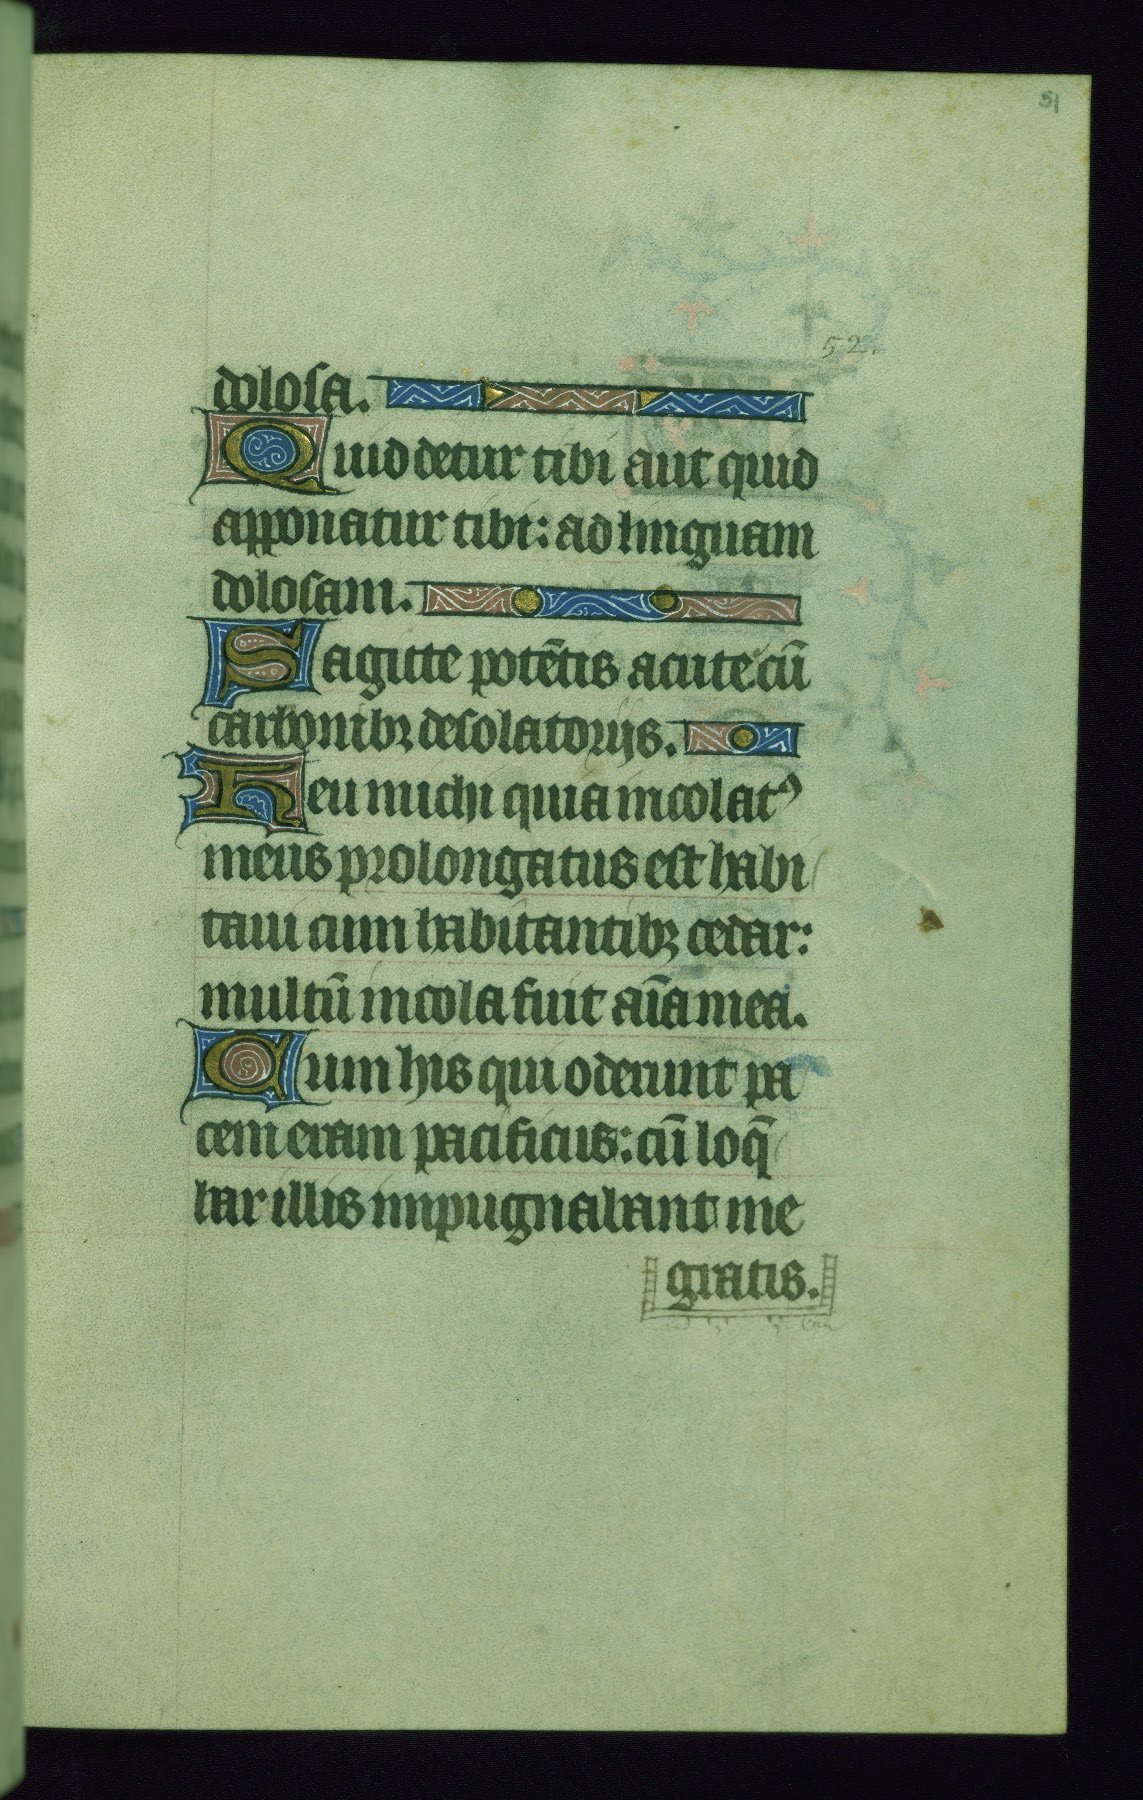 51
52.
dolosa.
Quid detur tibi aut quid
apponatur tibi: ad linguam
dolosam.
Sagitte potẽtis acute cũ
carbonibꝫ desolatorijs.
Heu michi quia incolatꝰ
meus prolongatus est habi
taui cum habitantibꝫ cedar:
multũ incola fuit aĩa mea.
Cum his qui oderunt pa
cem eram pacificus: cũ loq̃
bar illis inpugnabant me
gratis.